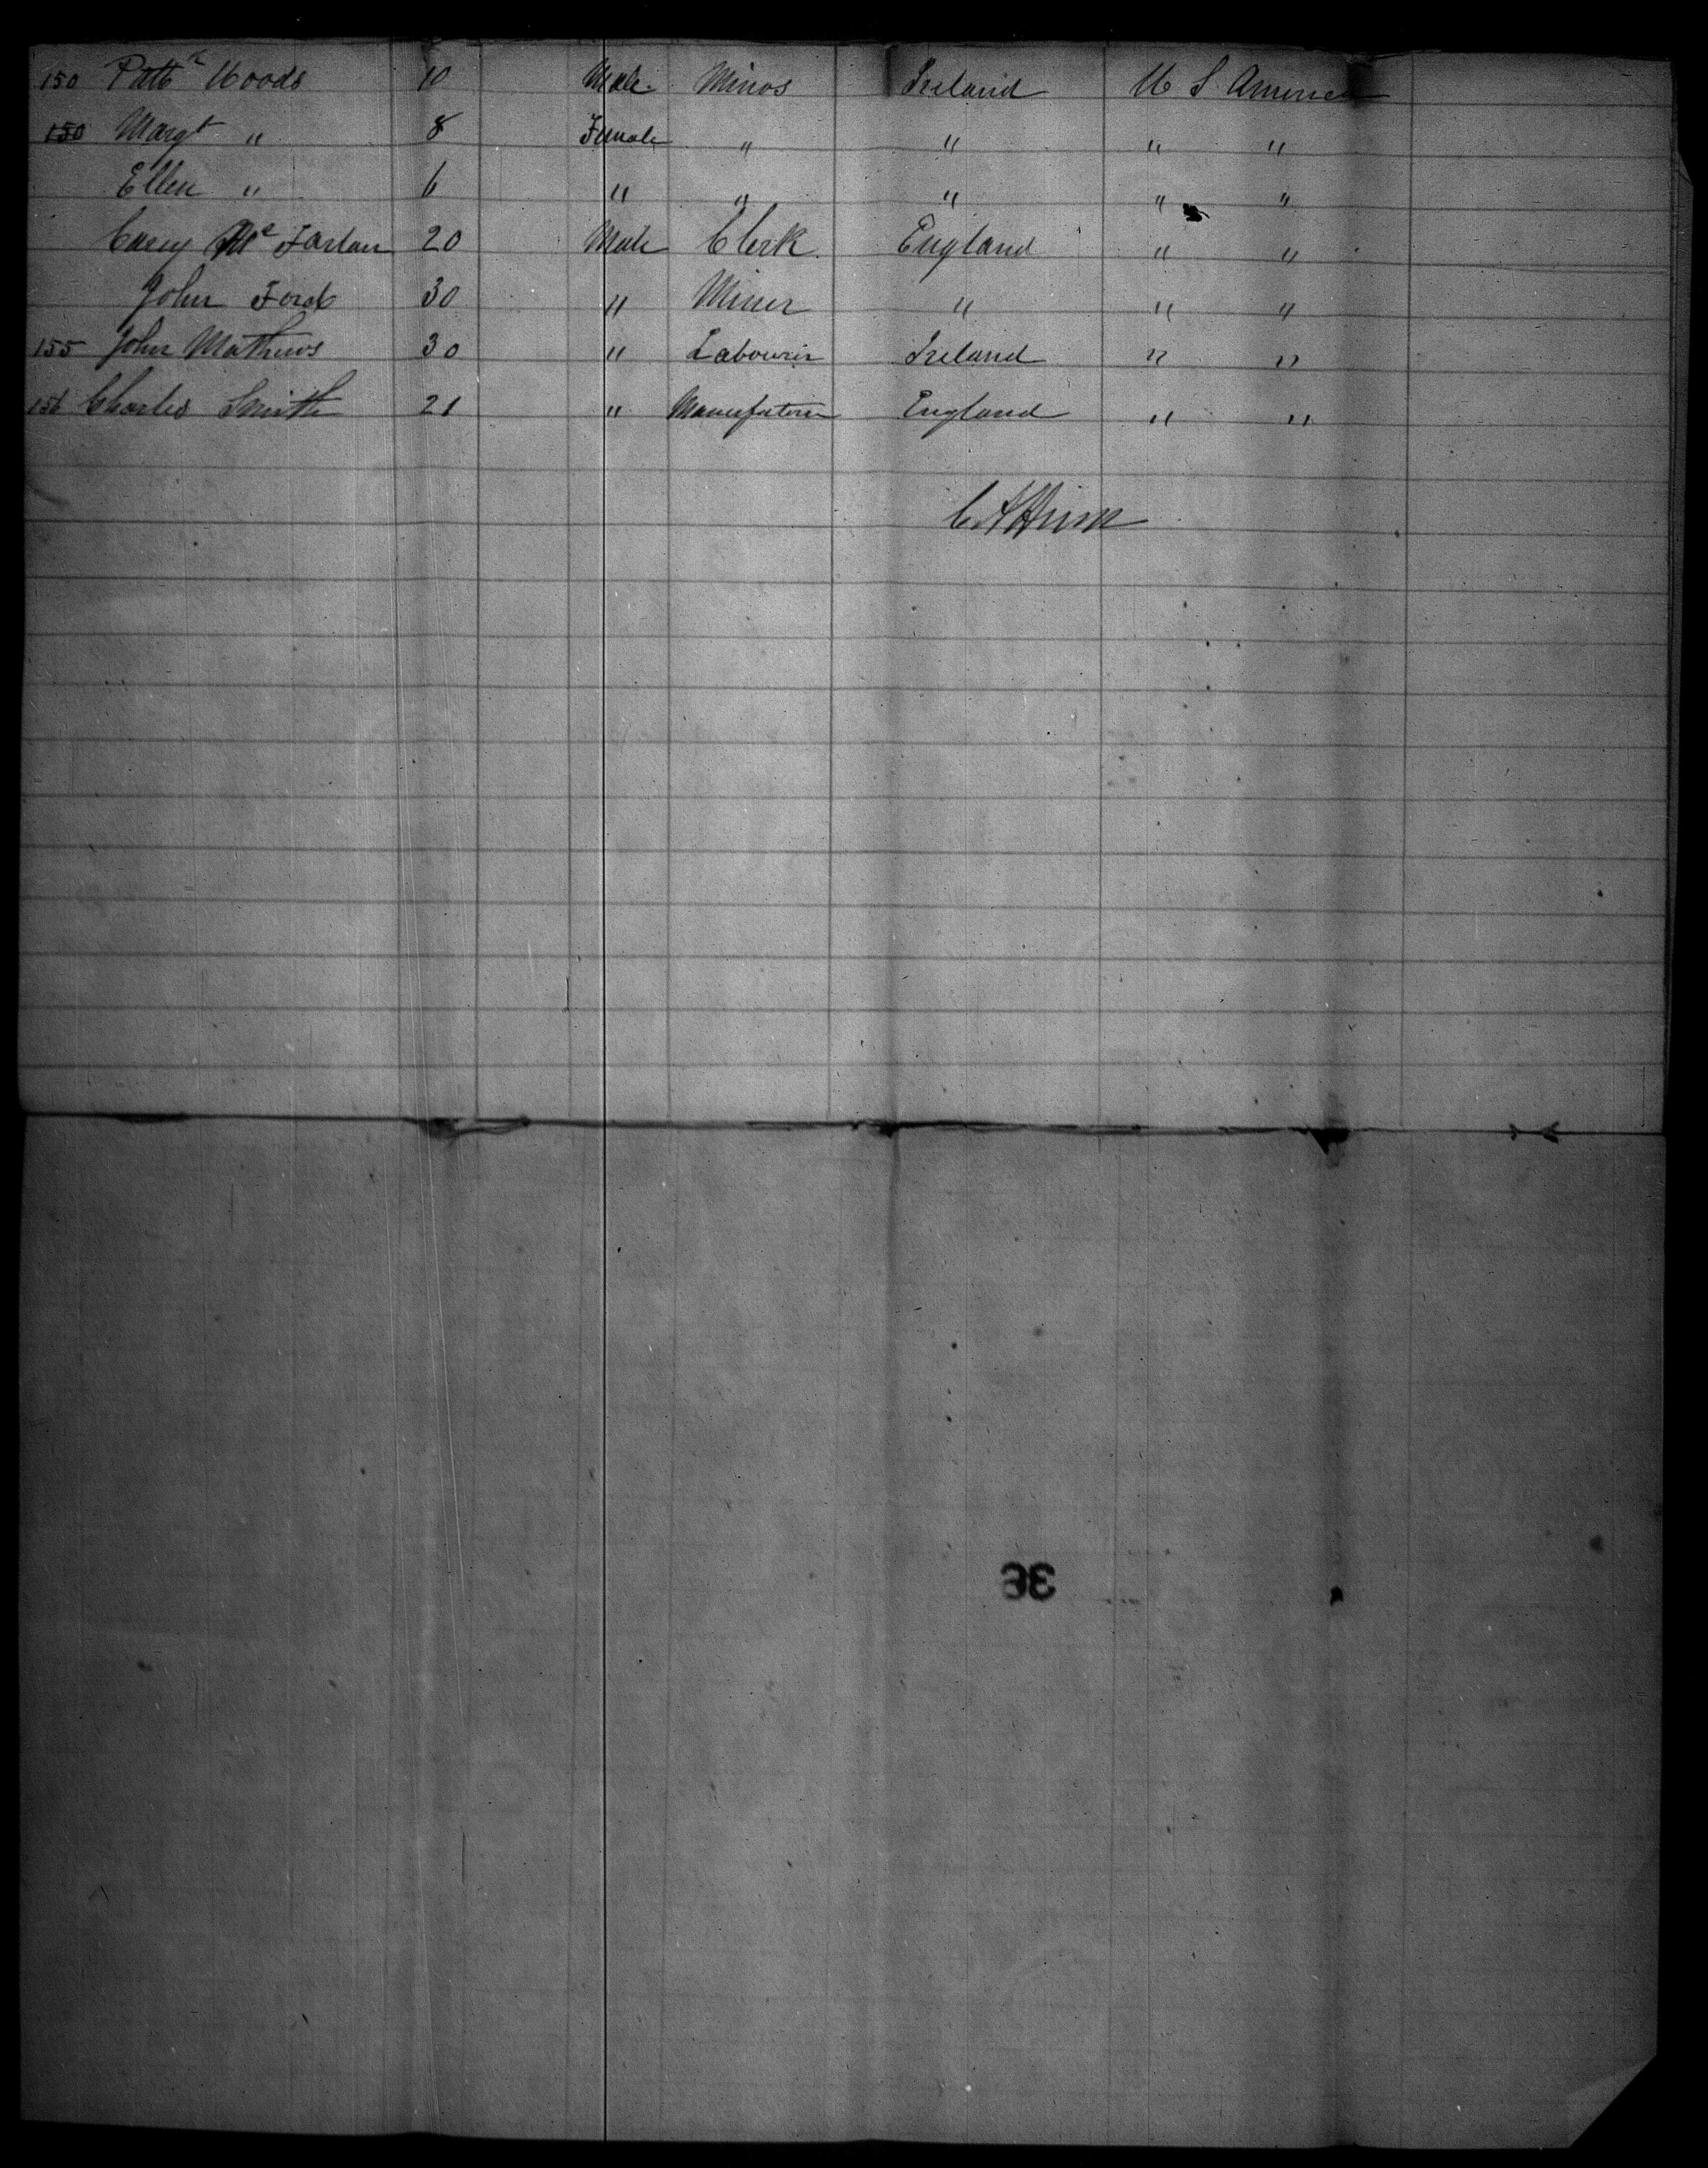 150 Patk Woods 10 Male Minos Ireland U S America
150 Margt " 8 Female " " " "
Ellen " 6 " " " " "
Mc Farlan 20 Male Clerk England " "
John Ford 30 " Miner " " "
155 John Mathews 30 " Labourer Ireland " "
156 Charles Smith 21 " England " "
36